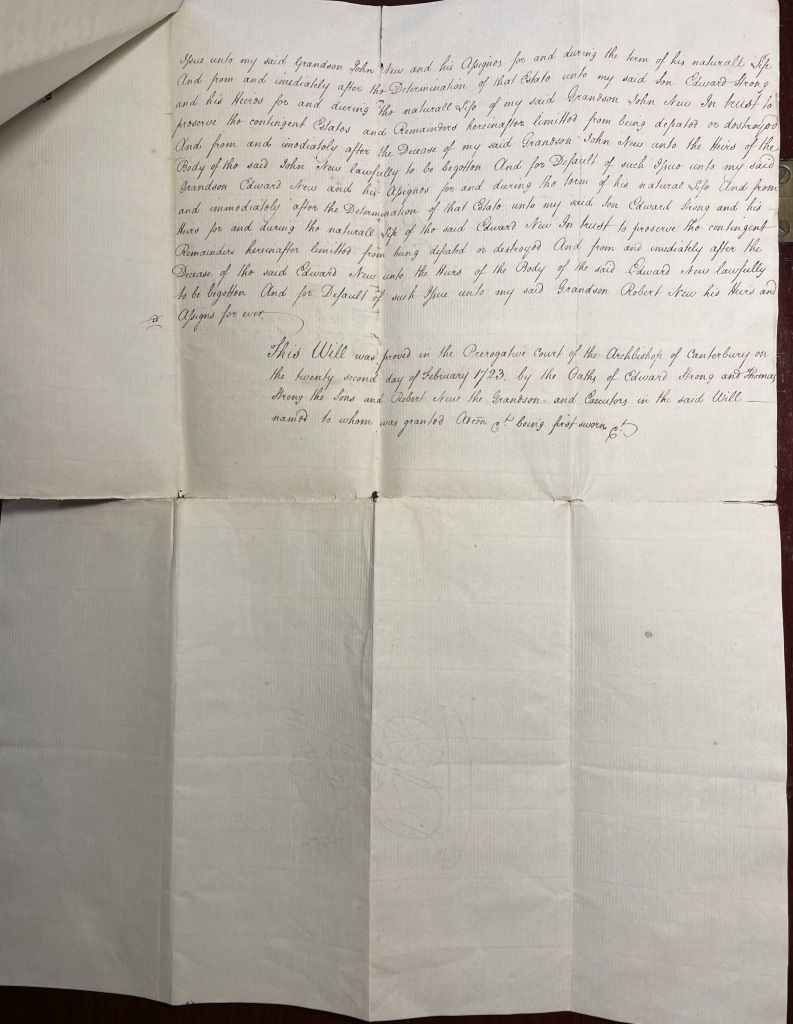 Issue unto my said Grandson John New and his Assignes for and during the term of his naturall Life
And from and imediately after the Determination of that Estate unto my said Son Edward Strong
and his Heires for and during the naturall Life of my said Grandson John New In trust to
preserve the contingent Estates and Remainders hereinafter limitted from being defeated or destroyed
And from and imediately after the Decease of my said Grandson John New unto the Heirs of the
Body of the said John New lawfully to be begotten And for Default of such Issue unto my said
Grandson Edward New and his Assignes for and during the term of his natural Life And from
and immediately after the Determination of that Estate unto my said Son Edward Strong and his
Heirs for and during the naturall Life of the said Edward New In trust to preserve the contingent
Remainders hereinafter limitted from being defeated or destroyed And from and imediately after the
Decease of the said Edward New unto the Heirs of the Body of the said Edward New lawfully
to be begotten And for Default of such Issue unto my said Grandson Robert New his Heirs and
Assigns for ever
This Will was proved in the Prerogative Court of the Archbishop of Canterbury on
the twenty second day of February 1723. by the Oaths of Edward Strong and Thomas
Strong the Sons and Robert New the Grandson and Executors in the said Will
named to whom was granted Adcon &ct being first sworn &ct